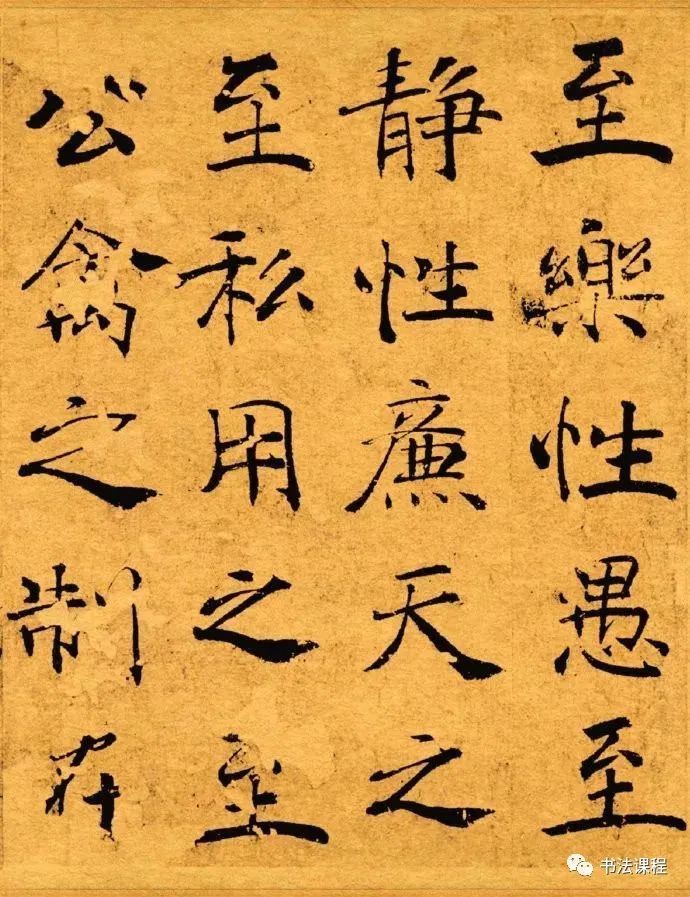 至樂性愚至
静性廉天之
至私用之至
公禽之制
书法课程